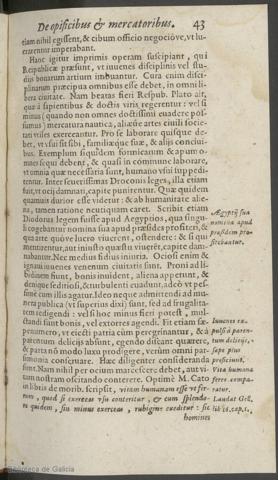 De opificibus & mercatoribus. 43
etiam nihil egissent, & cibum officio negociove, vt lu-
crarentur imperabant.
Haec igitur imprimis operam suscipiant, qui
Reipublicae praesunt, vt iuuenes disciplinis vel stu-
diis bonarum artium imbuantur. Cura enim disci-
plinarum praecipua omnibus esse debet, in omni li-
bera ciuitate. Nam beatas fieri Respub. Plato ait,
quae à sapientibus & doctis viris regerentur: vel si
minus (quando non omnes doctissimi euadere pos-
sumus) mercaturae nautica, aliaeve artes ciuili socie-
tati vtiles exerceantur. Pro se laborare quisque de-
bet, vt sui sit sibi, familiaeque suae, & alijs concui-
bus. Exemplum siquidem formicarum & apum o-
mnes sequi debent, & quasi in commune laborare,
vt omnia quae necessaria sunt, humano vsui suppedi-
tentur. Inter seuerissimas Draconis leges, illa etiam
fuit, vt ocij damnati, capite punirentur. Quae quidem
quamuis durior esse videtur: & ab humanitate alie-
na, tamen ratione neutiquam caret. Scribit etiam
Diodorus legem fuisse apud Aegyptios, qua singu-
li cogebantur nomina sua apud praesides profiteri, &
qua arte quóve lucro viuerent, ostendere: & si qui
mentirentur, aut iniusto quaestu viuerēt, capite dam-
nabantur. Nec medius fidius iniuria. Ociosi enim &
ignaui iuuenes venenum ciuitatis sunt. Proni ad li-
bidinem sunt, bonis inuident, aliena appetunt, &
denique seditiosi, & turbulenti euadunt, adeò vt pes-
simè cum illis agatur. Ideo neque admittendi ad mu-
nera publica (vt superius dixi) sunt, sed ad frugalita-
tem redigendi: vel si hoc minus fieri potest, mul-
ctandi sunt bonis, vel extorres agendi. Fit etiam sae-
penumero, vt eiecti patria cùm peregrinantur, & à
parentum delicijs absunt, egendo discant quaerere,
& parta nō modo luxu prodigere, verùm omni par-
simonia conseruare. Haec diligenter consideranda
sunt. Nam nihil per ocium marcescere debet, aut vi-
tam nostram oscitando conterere. Optimè M. Cato
in libris de morib. scripsit, vitam humanam esse vt fer-
rum, quod si exerceas vsu conteritur, & cum splendo-
re quidem, sin minus exerceas, rubigine exeditur: sic
homines
Aegyptij sua
nomina apud
praesidem pro-
fitebantur.
Iuuenes ex-
pulsi à paren-
tum delicijs,
saepe pius
proficiunt.
Vita humana
ferro compa-
ratur.
Laudat Gell.
lib. 11. cap. 2.
Biblioteca de Galicia